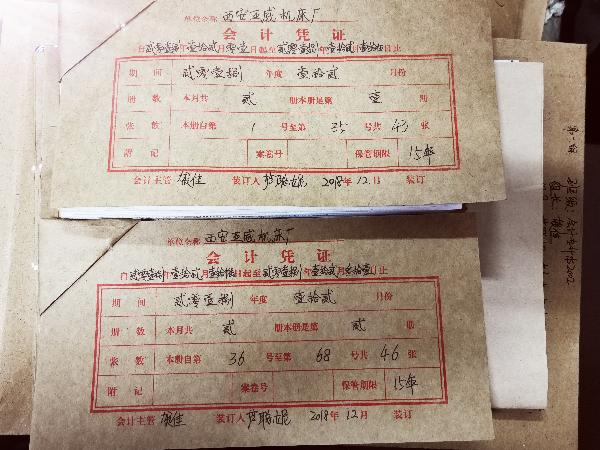 单位名称 西安亚威机床厂
会计凭证
自贰零壹捌年壹拾贰月零壹日起至贰零壹捌年壹拾贰月壹拾伍日止
期间 贰零壹捌 年度 壹拾贰 月份
册数 本月共 贰 册本册是第 壹 册
张数 本册自第 1 号至第 35 号共 43 张
附记 案卷号 保管期限 15年
会计主管 装订人 2018年12月 装订
单位名称 西安亚威机床厂
会计凭证
自贰零壹捌年壹拾贰月壹拾 日起至贰零壹捌年壹拾贰月 日止
期间 贰零壹捌 年度 壹拾贰 月份
册数 本月共 贰 册本册是第 贰 册
张数 本册自第 36 号至第 68 号共 46 张
附记 案卷号 保管期限 15年
会计主管 装订人 2018年12月 装订
第一组
班级：会计 2002
组长：